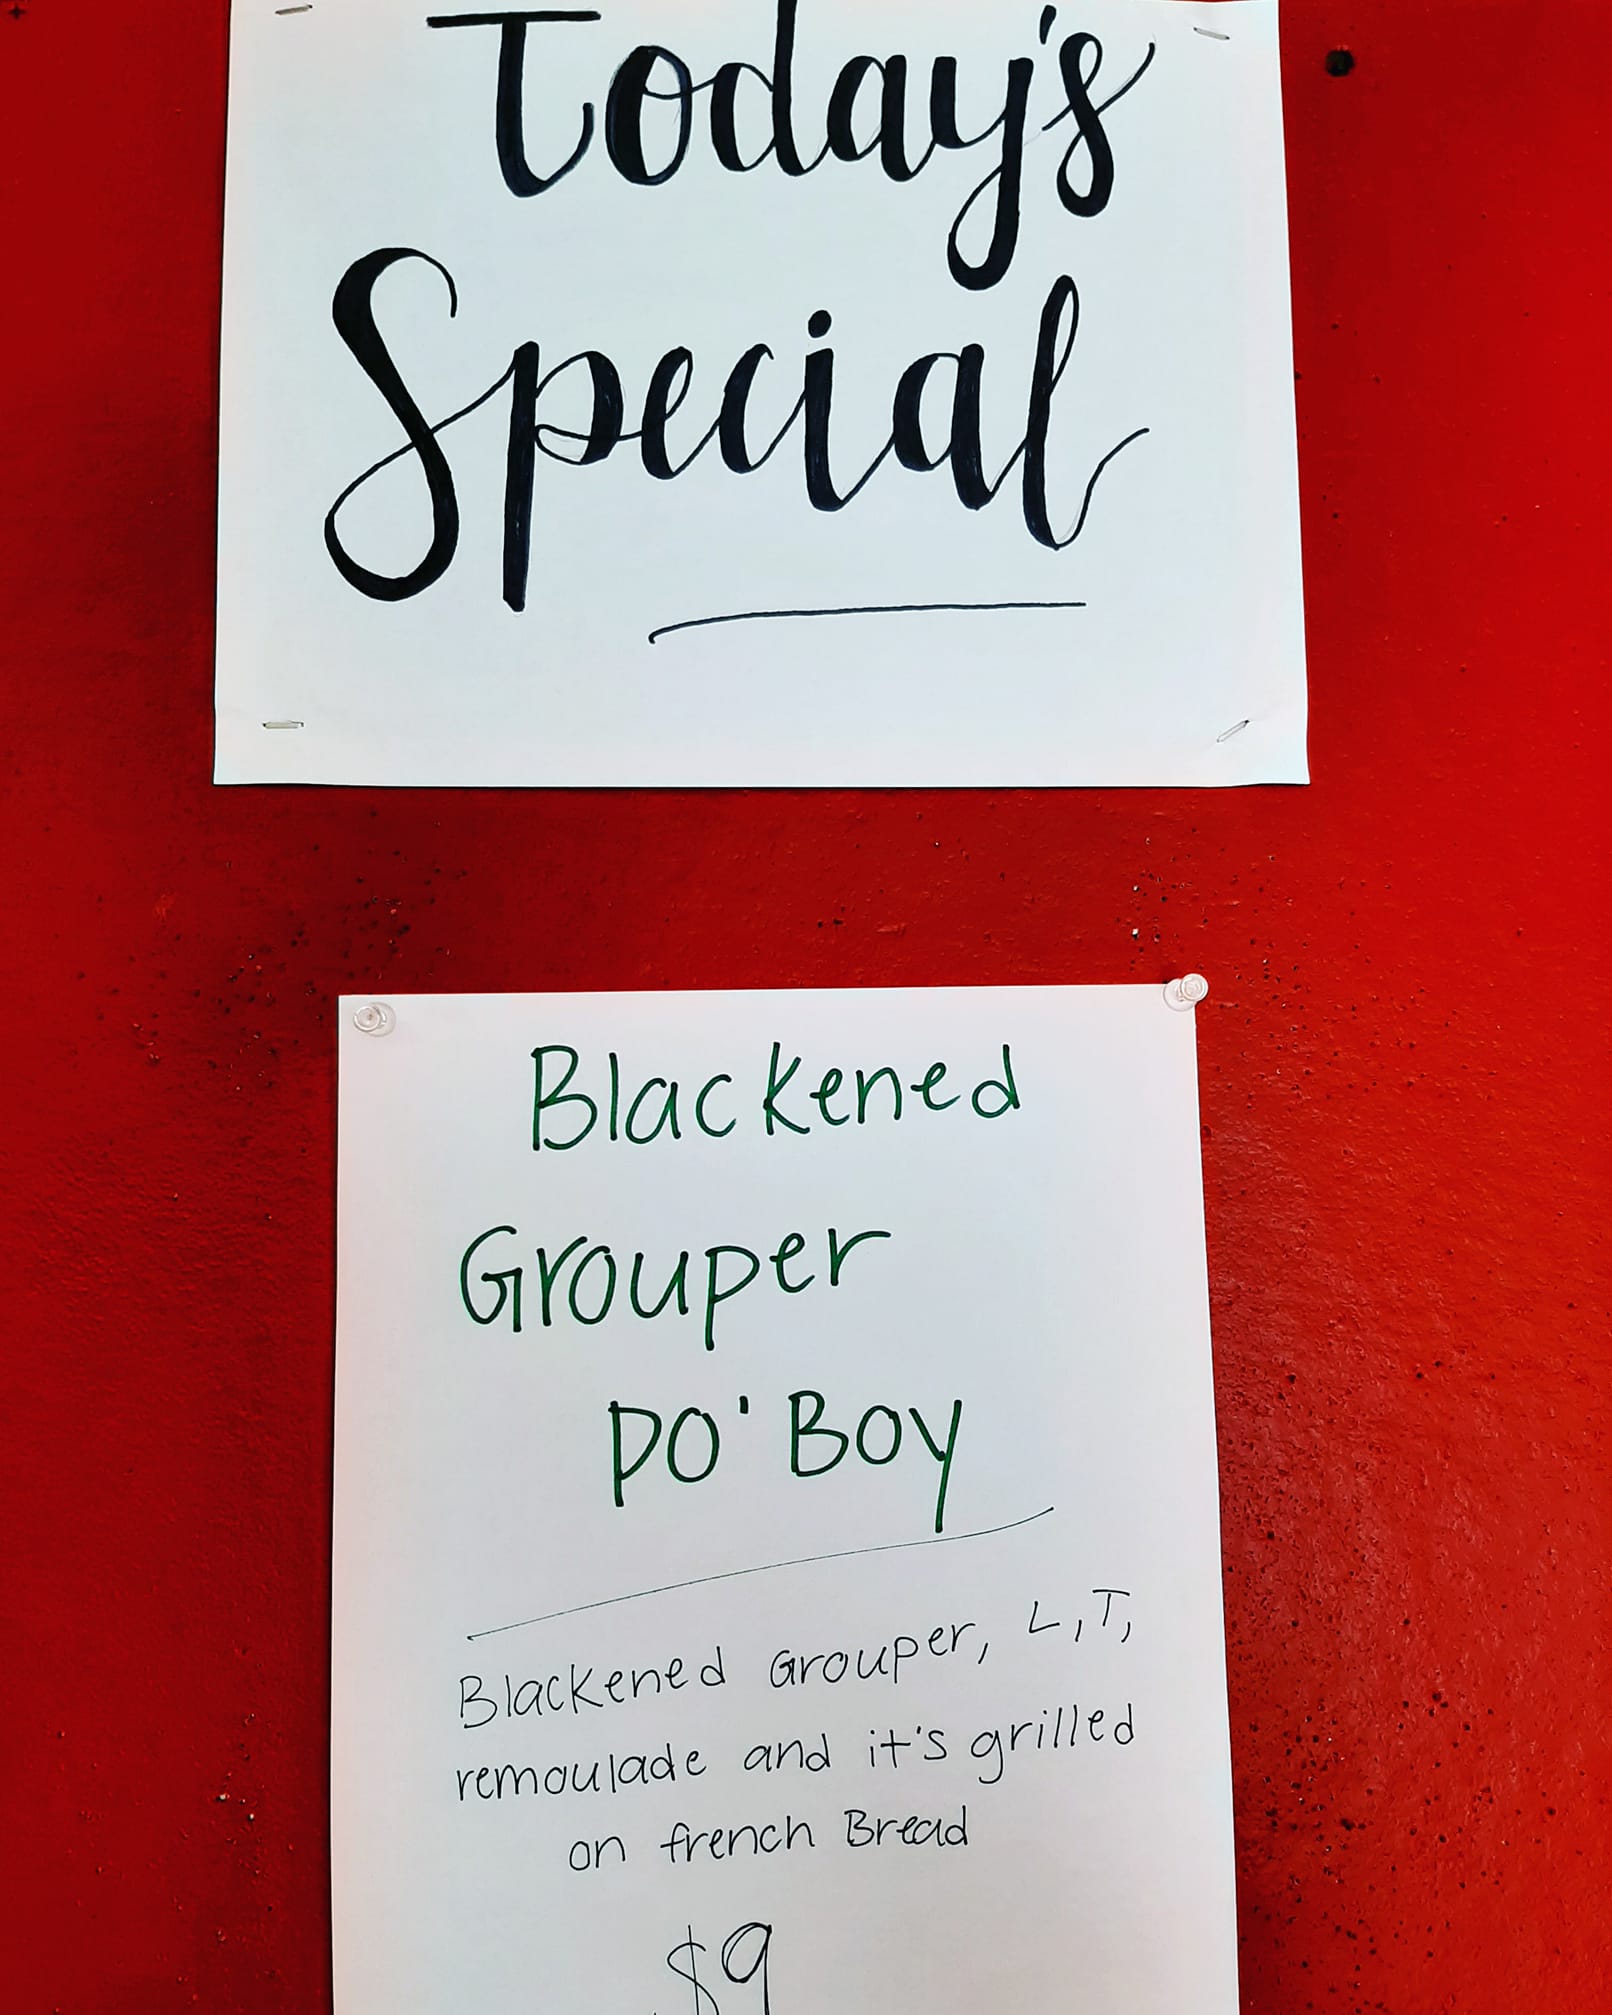 Today's
Special
Blackened
Grouper
PO'BOY
Blackened Grouper, L,T,
remoulade and it's grilled
on french Bread
$9